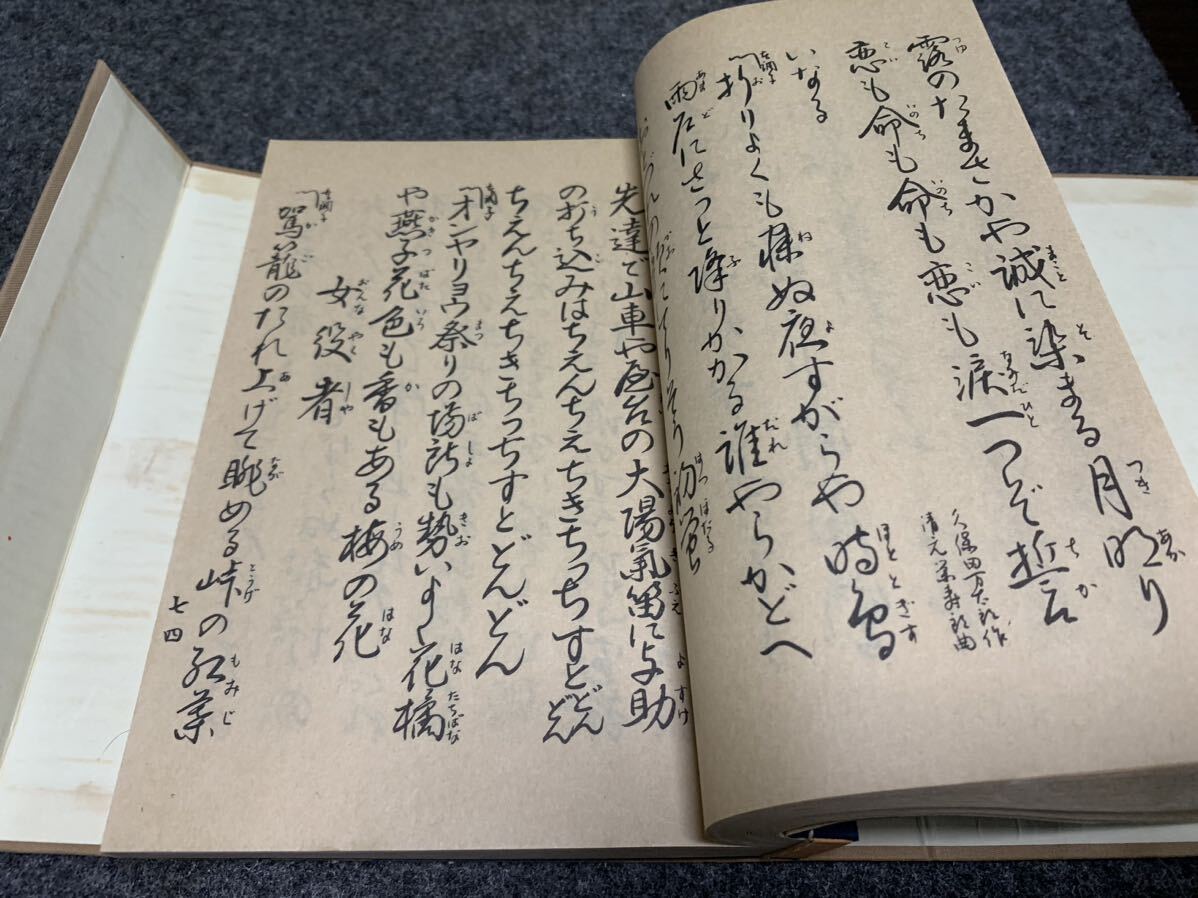 露のたまさかや誠に染まる月明り
恋も命も命も恋も涙一つぞ誓
久保田万太郎作
清元栄寿郎曲
いなる
本調子
折りよくも寐ぬ夜すがらや時鳥
雨戸にさつと降りかかる誰やらかどへ
先達で山車や屋台の大陽氣笛に与助
の打ち込みはちえんちえちきちつちすとどんどん
ちえんちえちきちつちすとどんどん
本調子
オンヤリョウ祭りの場所も勢いよく花橘
や燕子花色も香もある梅の花
女役者
本調子
駕籠のたれ上げて眺める峠の紅葉
七四